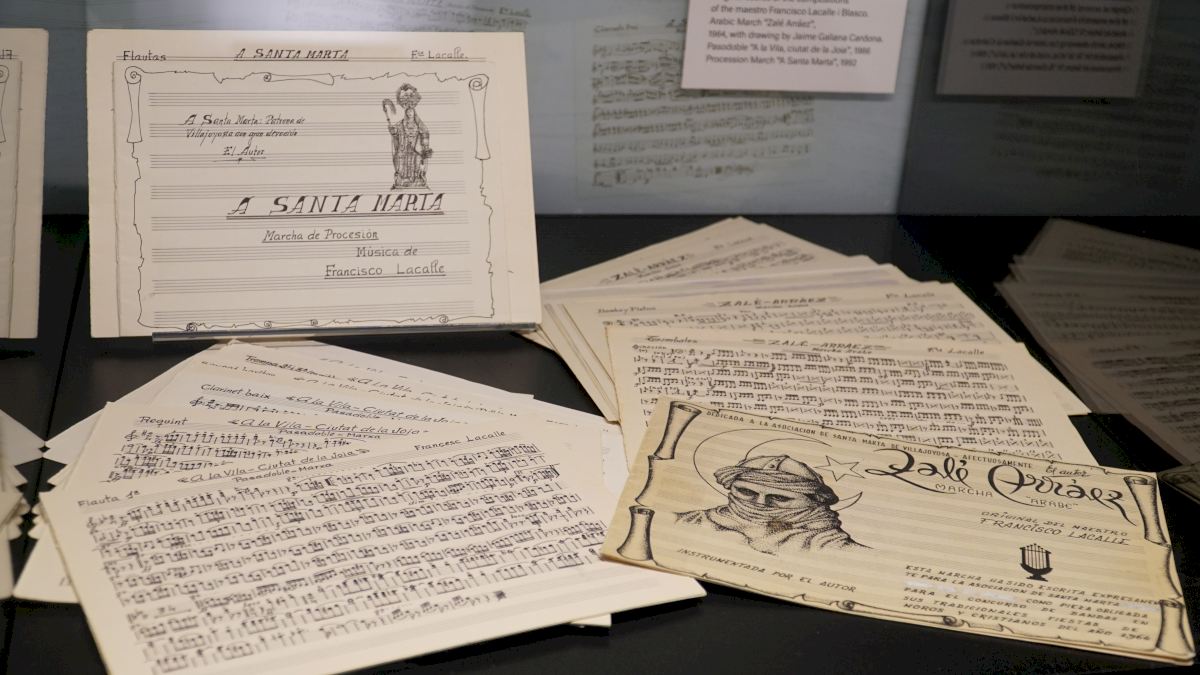 of the maestro Francisco Lacalle i Blasco.
Arabic March "Zalé Arráez",
1964, with drawing by Jaime Galiana Cardona.
Pasodoble "A la Vila, ciutat de la Joia", 1986
Procession March "A Santa Marta", 1992
Flautas
A SANTA MARTA
Fco Lacalle.
A Santa Marta: Patrona de
Villajoyosa con gran devoción
El Autor
A SANTA MARTA
Marcha de Procesión
Música de
Francisco Lacalle
ZALÉ-ARRÁEZ
ZALÉ-ARRÁEZ
Marcha Arabe
Fco Lacalle
Timbales
ZALÉ-ARRÁEZ
Marcha Arabe
Fco Lacalle
«A la Vila
Clarinet baix
«A la Vila-Ciutat de la Joia»
Pasodoble-Marxa
Requint
«A la Vila-Ciutat de la Joia»
Pasodoble-Marxa
Francesc Lacalle
«A la Vila-Ciutat de la Joia»
Pasodoble-Marxa
Flauta 1ª
DEDICADA A LA ASOCIACION DE SANTA MARTA DE VILLAJOYOSA - AFECTUOSAMENTE El autor
Zalé Arráez
MARCHA "ARABE"
ORIGINAL DEL MAESTRO
FRANCISCO LACALLE
INSTRUMENTADA POR EL AUTOR
ESTA MARCHA HA SIDO ESCRITA EXPRESAMENTE
PARA LA ASOCIACION DE SANTA MARTA
COMO PIEZA OBLIGADA
PARA EL CONCURSO DE BANDAS EN
SUS TRADICIONALES FIESTAS DE
MOROS Y CRISTIANOS DEL AÑO 1964